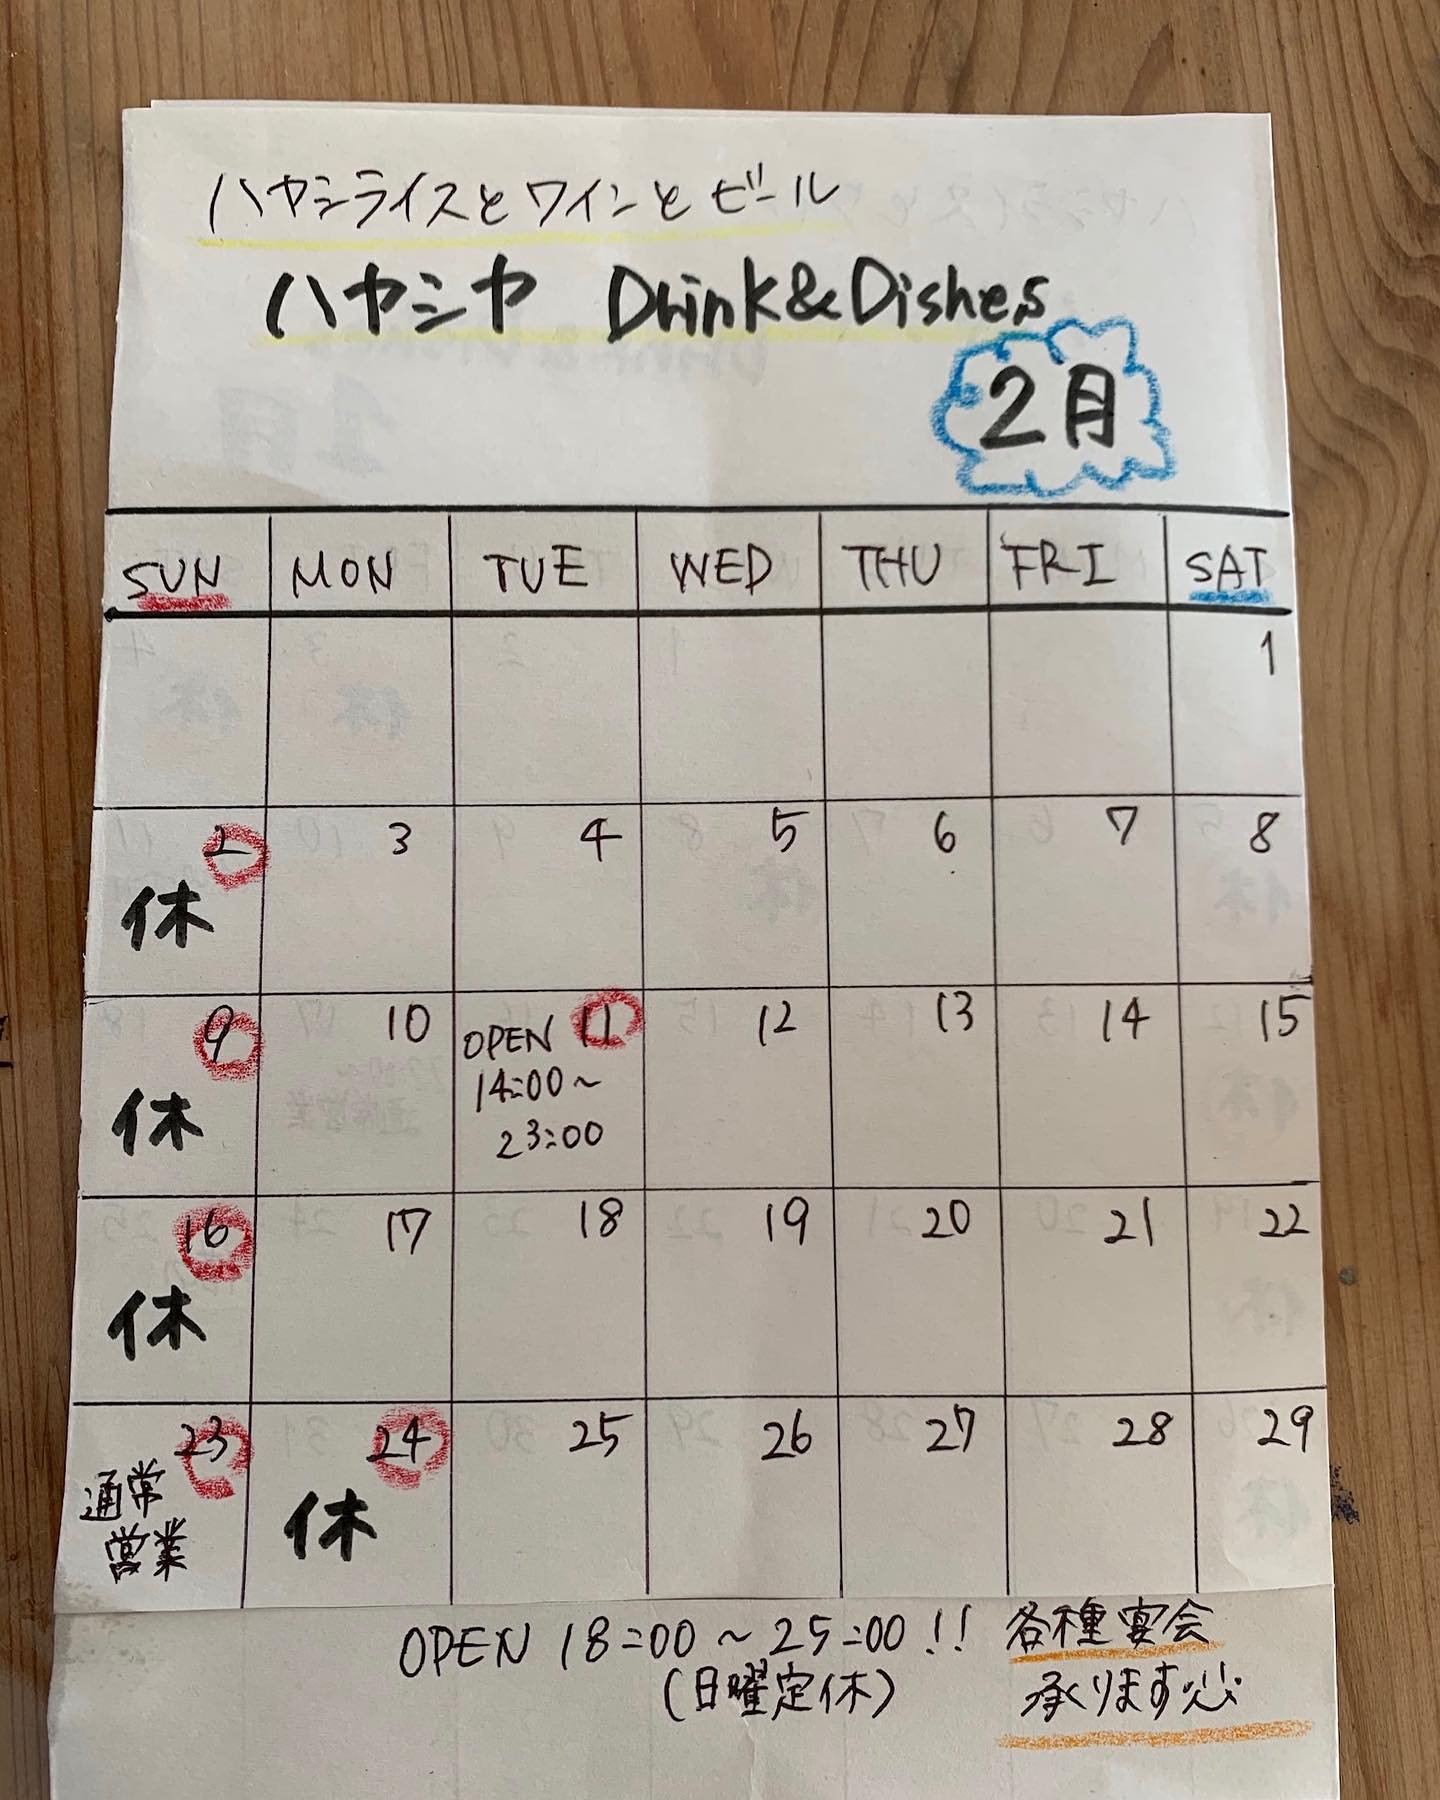 ハヤシライスとワインとビール
ハヤシヤ Drink&Dishes
2月
SUN MON TUE WED THU FRI SAT
1
2 3 4 5 6 7 8
休
9 10 11 12 13 14 15
休
OPEN
14:00~
23:00
16 17 18 19 20 21 22
休
23 24 25 26 27 28 29
通常
営業
休
OPEN 18:00~25:00!!
(日曜定休)
各種宴会
承ります